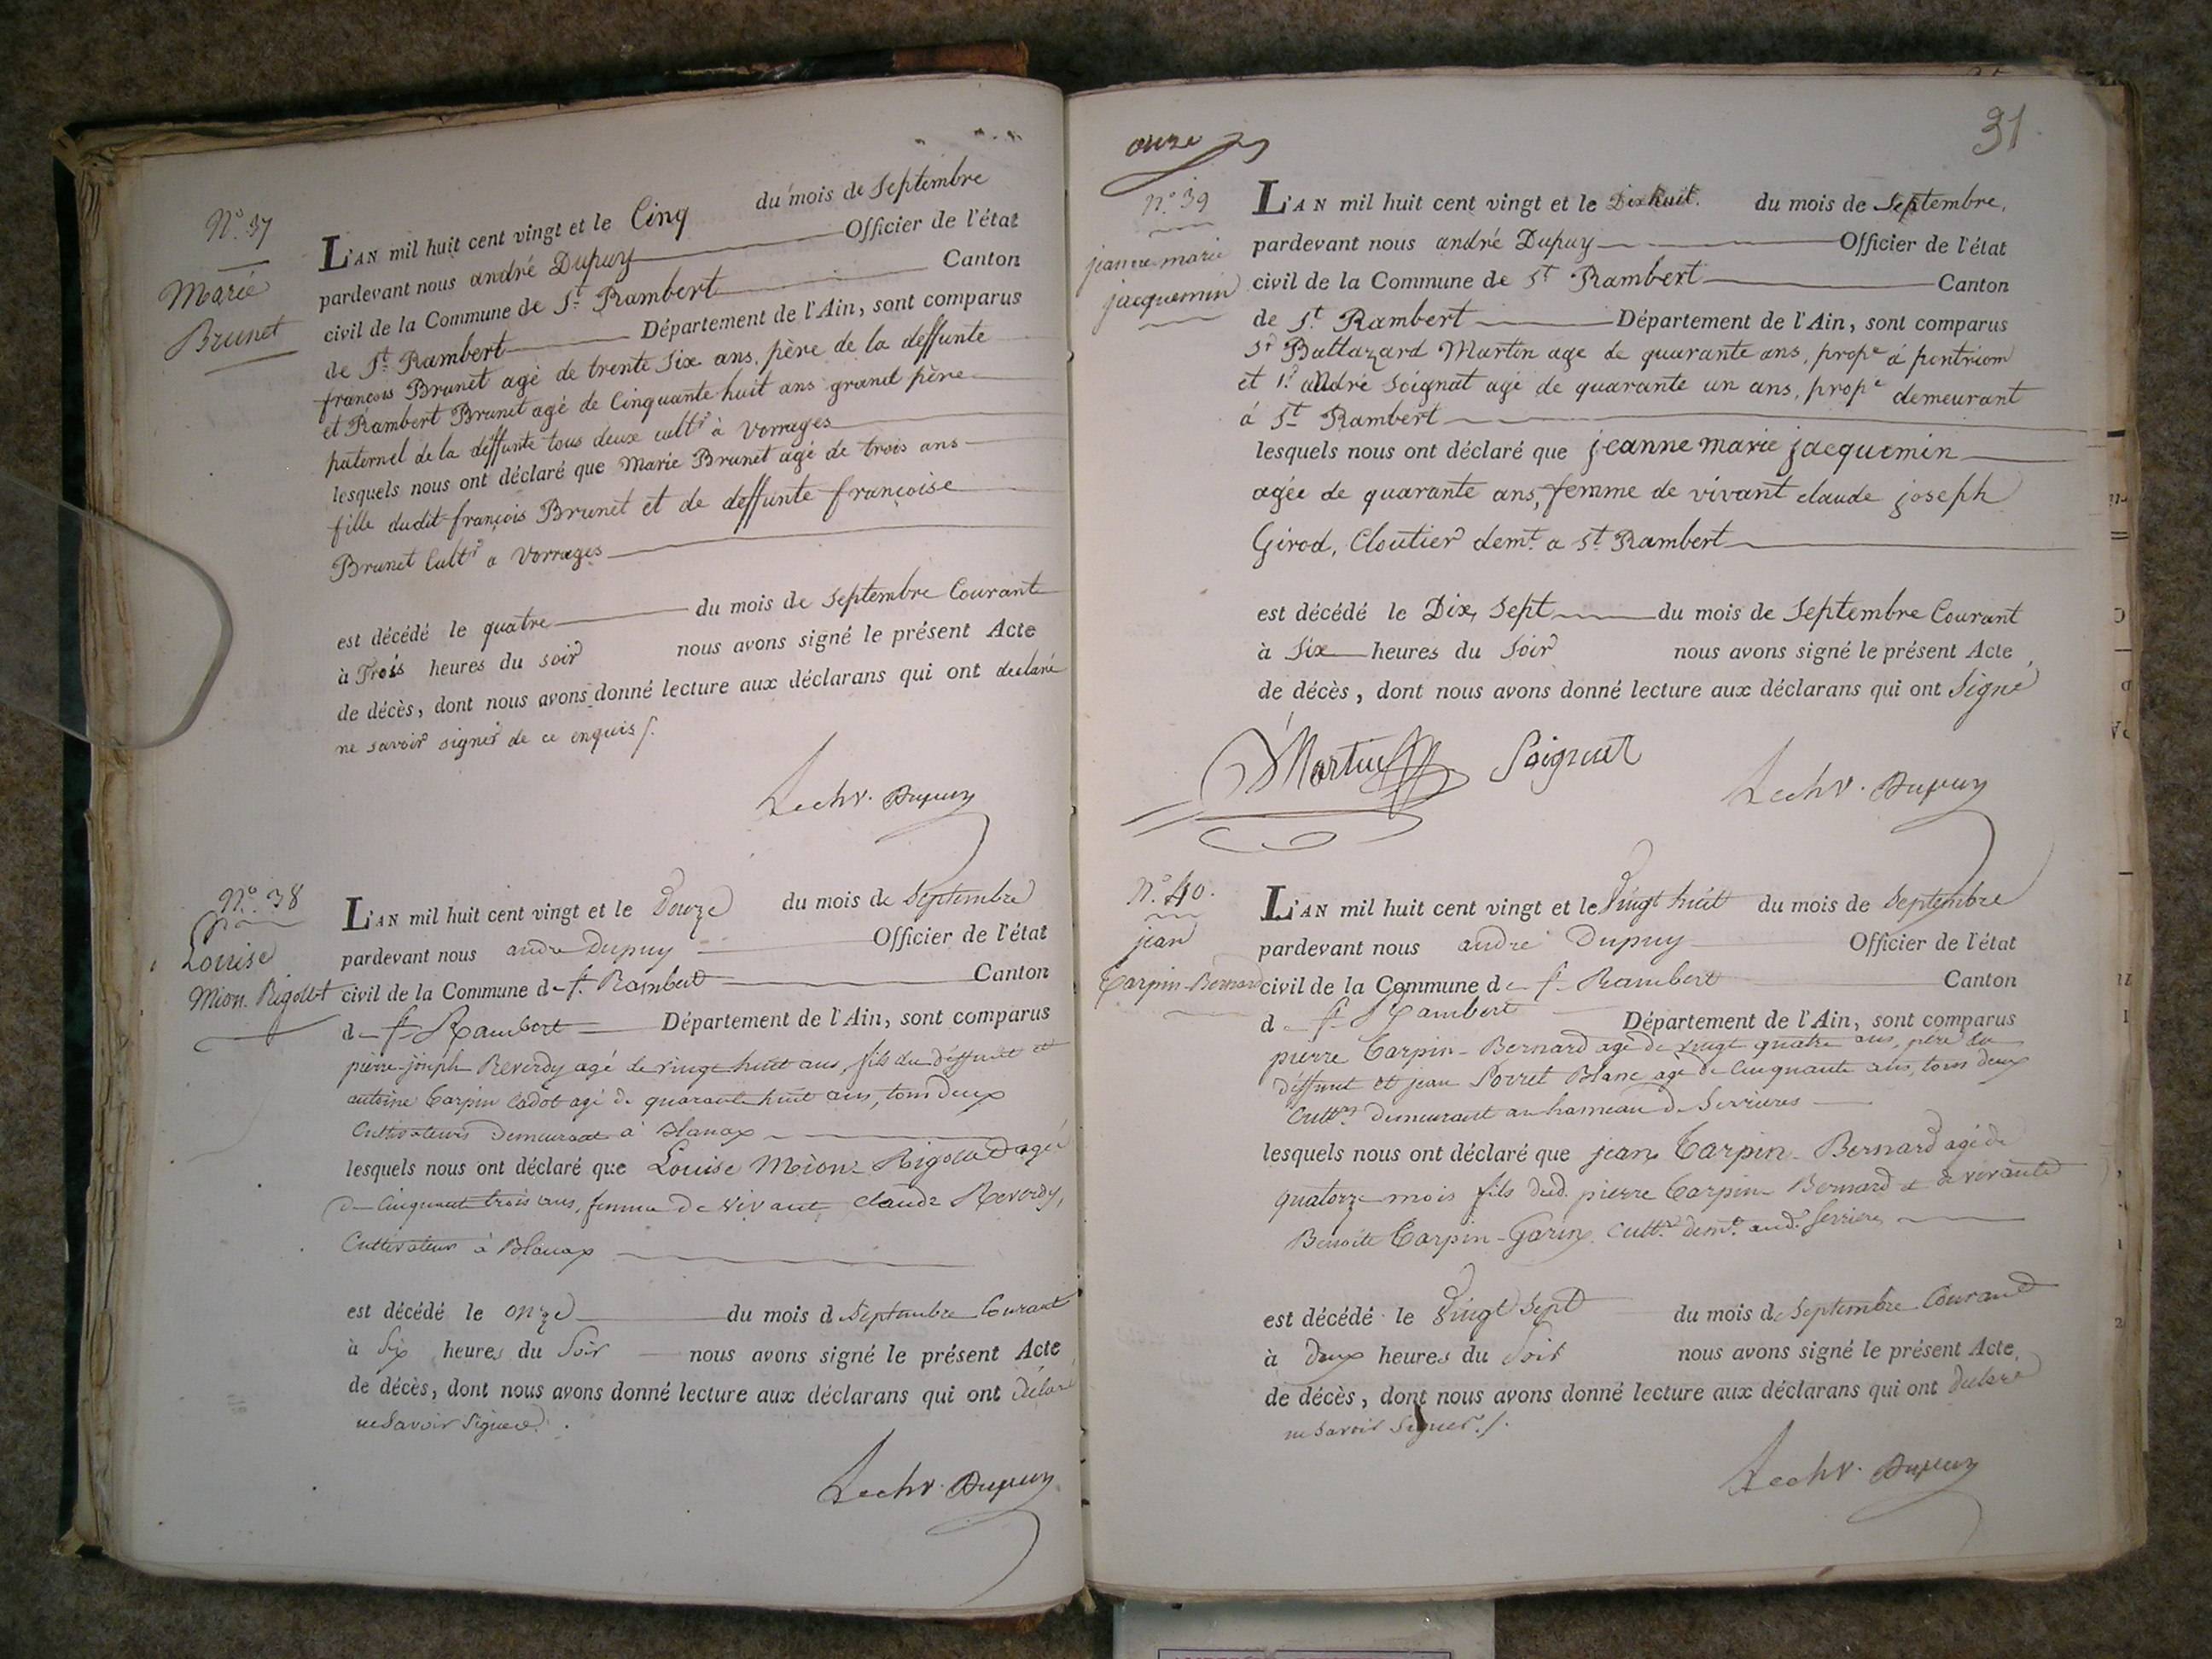 N.º 37
Marie
Brunet
L'AN mil huit cent vingt et le Cinq du mois de Septembre
pardevant nous andré Dupuy Officier de l'état
civil de la Commune de St. Rambert Canton
de St. Rambert Département de l'Ain, sont comparus
françois Brunet agé de trente Six ans, père de la deffunte
et Rambert Brunet agé de Cinquante huit ans grand père
paternel de la deffunte tous deux cultrs à Vorrages
lesquels nous ont déclaré que Marie Brunet agé de trois ans
fille dudit françois Brunet et de deffunte françoise
Brunet Cultr a Vorrages
est décédé le quatre du mois de Septembre Courant
à Trois heures du soir nous avons signé le présent Acte
de décès, dont nous avons donné lecture aux déclarans qui ont declaré
ne savoir signer de ce enquis /.
Dupuy
N.º 38
Louise
Mion Rigollet
L'AN mil huit cent vingt et le Douze du mois de Septembre
pardevant nous andre Dupuy Officier de l'état
civil de la Commune de St. Rambert Canton
de St. Rambert Département de l'Ain, sont comparus
pierre-joseph Reverdy agé de vingt huit ans, fils du Déffunt et
antoine Carpin Cadot agé de quarante huit ans, tous deux
Cultivateurs Demeurant à Blanax
lesquels nous ont déclaré que Louise Mion Rigollet agée
de Cinquante trois ans, femme De Vivant Claude Reverdy,
Cultivateur à Blanax
est décédé le onze du mois d Septembre Courant
à Six heures du Soir nous avons signé le présent Acte
de décès, dont nous avons donné lecture aux déclarans qui ont déclaré
ne Savoir Signer.
Dupuy
31
onze
N.º 39
jeanne marie
jacquemin
L'AN mil huit cent vingt et le Dixhuit. du mois de Septembre,
pardevant nous andré Dupuy Officier de l'état
civil de la Commune de St Rambert Canton
de St. Rambert Département de l'Ain, sont comparus
Sr Baltazard Martin age de quarante ans, prope á pontriom
et Sr. André Soignat agé de quarante un ans, prope demeurant
á St Rambert
lesquels nous ont déclaré que jeanne marie jacquemin
agée de quarante ans, femme de vivant claude joseph
Girod, Cloutier demt. a St. Rambert
est décédé le Dix, Sept du mois de Septembre Courant
à Six heures du Soir nous avons signé le présent Acte
de décès, dont nous avons donné lecture aux déclarans qui ont Signé
Martin Soignat
Dupuy
N.º 40.
jean
Carpin-Bernard
L'AN mil huit cent vingt et le Vingt huit du mois de Septembre
pardevant nous andré Dupuy Officier de l'état
civil de la Commune de St. Rambert Canton
de St. Rambert Département de l'Ain, sont comparus
pierre Carpin-Bernard agé de vingt quatre ans, père du
déffunt et jean Sorret Blanc agé de Cinquante ans, tous deux
Cultrs demeurant au hameau de Serrieres
lesquels nous ont déclaré que jean Carpin-Bernard agé de
quatorze mois fils dud. pierre Carpin-Bernard et de vivante
Benoite Carpin-Garin Cultrs demt. aud. Serrieres
est décédé le Vingt Sept du mois de Septembre Courant
à deux heures du Soir nous avons signé le présent Acte
de décès, dont nous avons donné lecture aux déclarans qui ont declaré
ne Savoir Signer./.
Dupuy